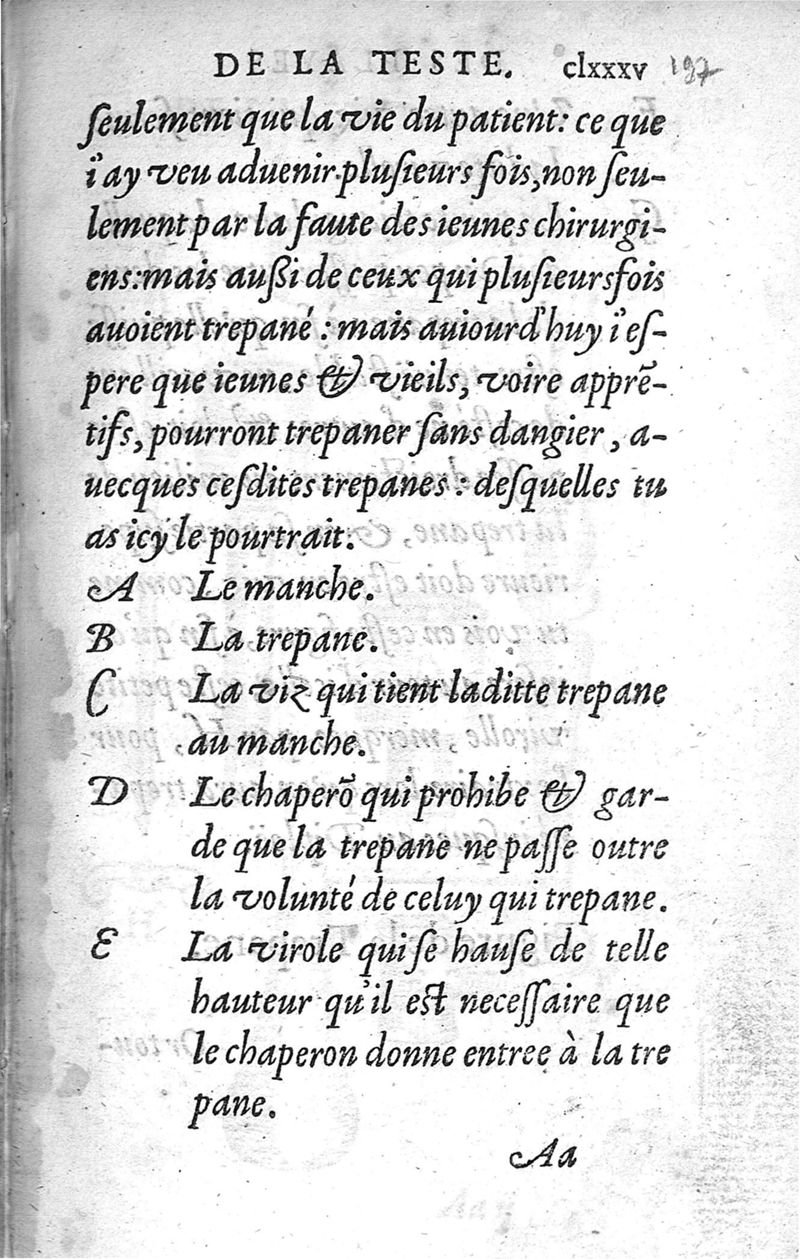 DE LA TESTE. clxxxv 197
ſeulement que la vie du patient: ce que
i'ay veu aduenir pluſieurs fois, non ſeu-
lement par la faute des ieunes chirurgi-
ens: mais auſſi de ceux qui pluſieurs fois
auoient trepané : mais auiourd'huy i'eſ-
pere que ieunes & vieils, voire apprẽ-
tifs, pourront trepaner ſans dangier, a-
uecques ceſdites trepanes : deſquelles tu
as icy le pourtrait.
A Le manche.
B La trepane.
C La viz qui tient laditte trepane
au manche.
D Le chaperõ qui prohibe & gar-
de que la trepane ne paſſe outre
la volunté de celuy qui trepane.
E La virole qui ſe hauſe de telle
hauteur qu'il eſt neceſſaire que
le chaperon donne entree à la tre
pane.
Aa